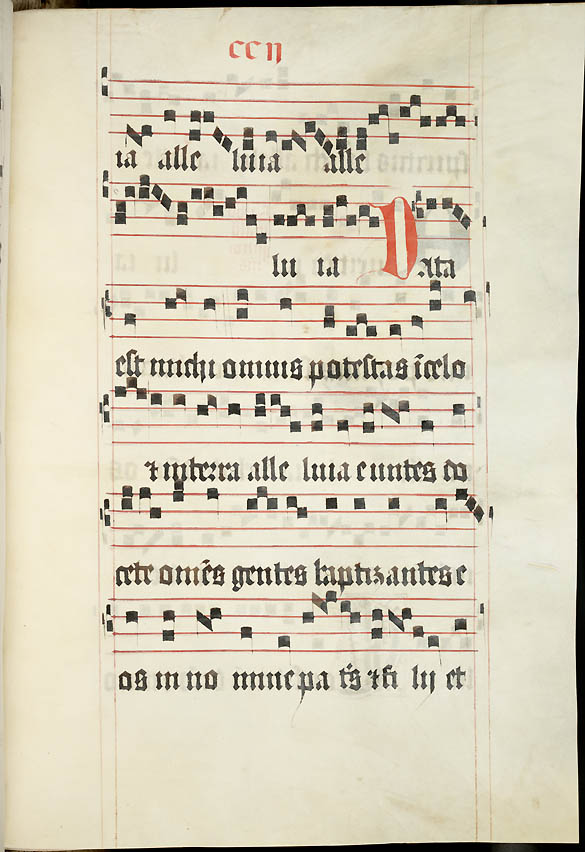 ccij
ia alle luia alle
lu ia Data
est michi omnis potestas ĩcelo
⁊ interra alle luia euntes do
cete omēs gentes baptizantes e
os in no mine pa tr̄s ⁊ fi lij et